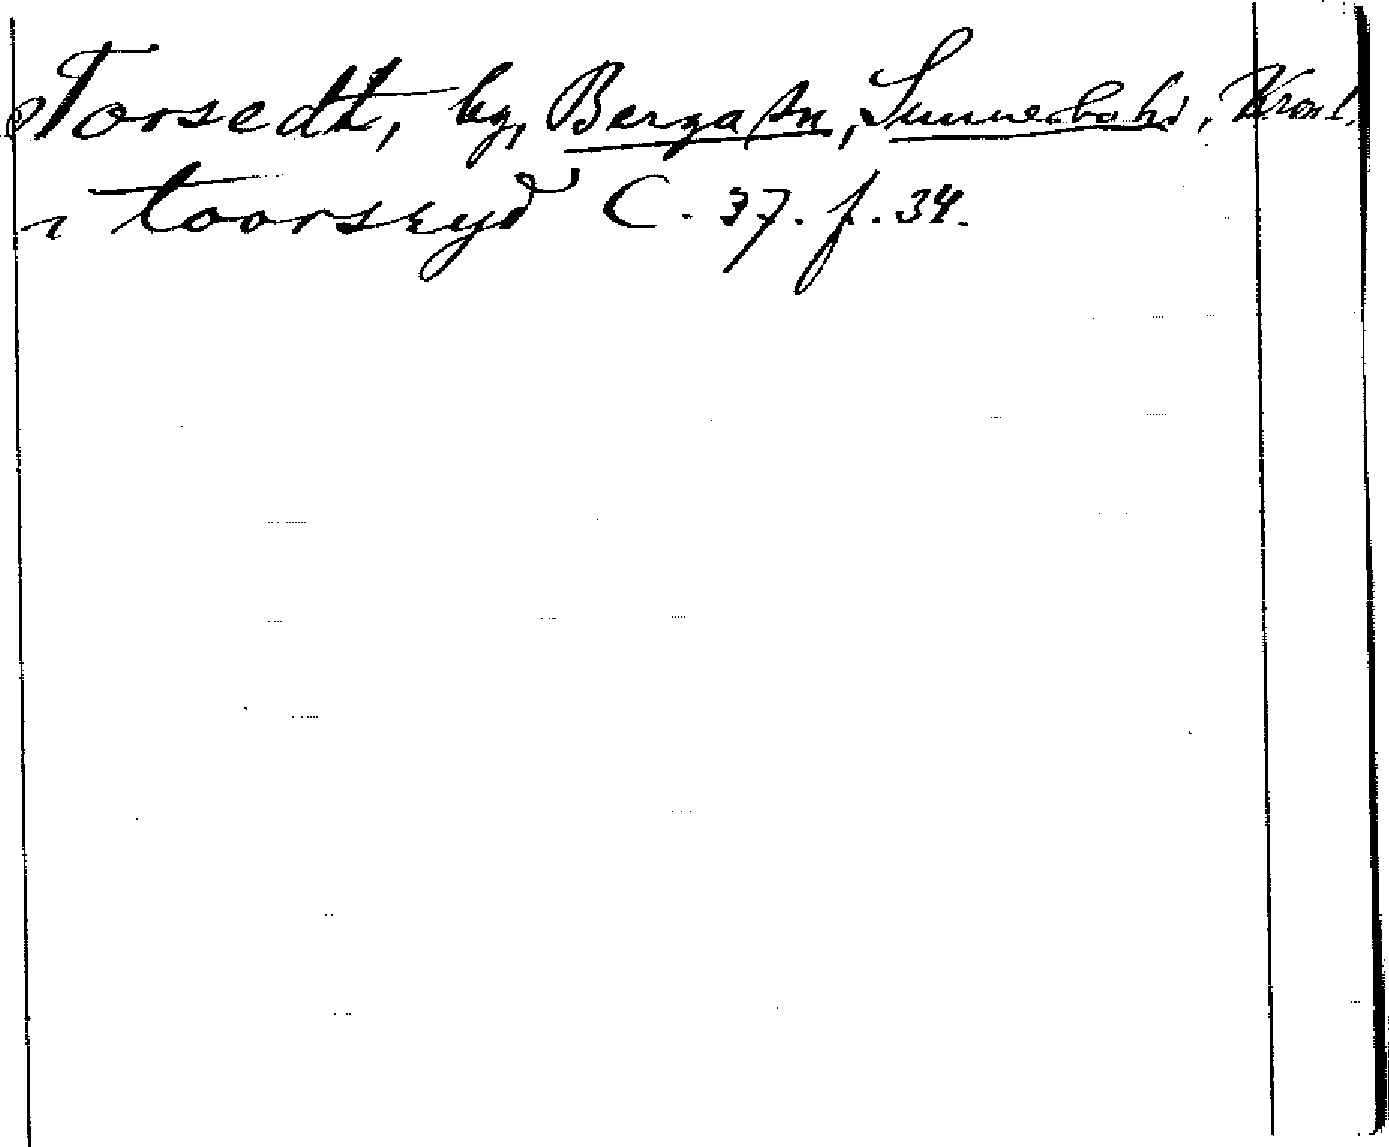 Torsedt, by, Berga sn, Sunnerbo hd, Kron.l.
i toorseyd C. 37. f. 34.